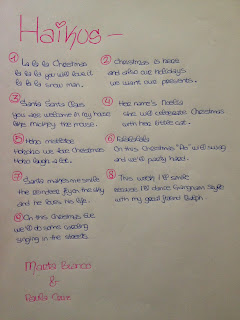 Haikus -
① La la la Christmas
la la la you will love it
la la la snow man.
② Christmas is here
and also our holidays
we want our presents.
③ Santa Santa Claus
you are welcome in my house
like mickey the mouse.
④ Her name's Noelia
she will celebrate Christmas
with her little cat.
⑤ Hoho mistletoe
Hohoho we love Christmas
Hoho laugh a lot.
⑥
On this Christmas "Pe" will swag
and we'll party hard.
⑦ Santa makes me smile
the reindeer fly on the sky
and he loves his life.
⑧ This wish I'll smile
because I'll dance Gangnam Style
with my good friend Ralph
⑨ On this Christmas Eve
we'll do some caroling
singing in the streets.
Marta Blanco
&
Paula